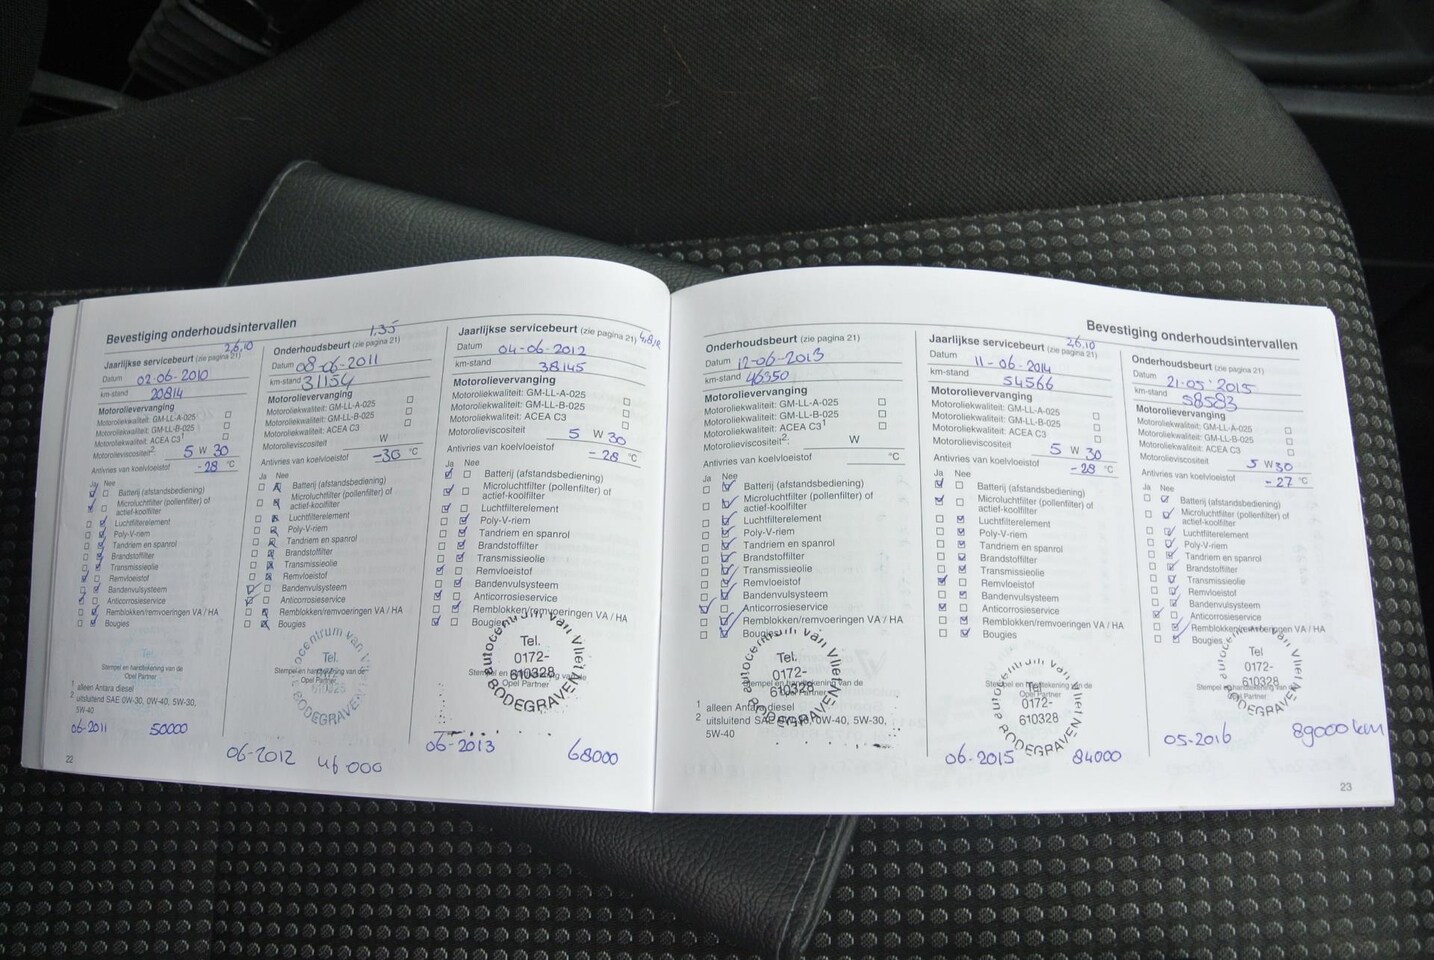 Bevestiging onderhoudsintervallen
2,6,10
Jaarlijkse servicebeurt (zie pagina 21)
Datum 02-06-2010
km-stand 20814
Motorolievervanging
Motoroliekwaliteit: GM-LL-A-025
Motoroliekwaliteit: GM-LL-B-025
Motoroliekwaliteit: ACEA C3¹
Motorolieviscositeit²: 5 W 30
Antivries van koelvloeistof -28 °C
Ja Nee
Batterij (afstandsbediening)
Microluchtfilter (pollenfilter) of
actief-koolfilter
Luchtfilterelement
Poly-V-riem
Tandriem en spanrol
Brandstoffilter
Transmissieolie
Remvloeistof
Bandenvulsysteem
Anticorrosieservice
Remblokken/remvoeringen VA / HA
Bougies
Stempel en handtekening van de
Opel Partner
¹ alleen Antara diesel
² uitsluitend SAE 0W-30, 0W-40, 5W-30,
5W-40
06-2011 50000
22
1,3,5
Onderhoudsbeurt (zie pagina 21)
Datum 08-06-2011
km-stand 31154
Motorolievervanging
Motoroliekwaliteit: GM-LL-A-025
Motoroliekwaliteit: GM-LL-B-025
Motoroliekwaliteit: ACEA C3
Motorolieviscositeit W
Antivries van koelvloeistof -30 °C
Ja Nee
Batterij (afstandsbediening)
Microluchtfilter (pollenfilter) of
actief-koolfilter
Luchtfilterelement
Poly-V-riem
Tandriem en spanrol
Brandstoffilter
Transmissieolie
Remvloeistof
Bandenvulsysteem
Anticorrosieservice
Remblokken/remvoeringen VA / HA
Bougies
autocentrum van Vliet
Tel.
0172-
610328
BODEGRAVEN
Stempel en handtekening van de
Opel Partner
06-2012 46000
Jaarlijkse servicebeurt (zie pagina 21) 4,8,12
Datum 04-06-2012
km-stand 38145
Motorolievervanging
Motoroliekwaliteit: GM-LL-A-025
Motoroliekwaliteit: GM-LL-B-025
Motoroliekwaliteit: ACEA C3
Motorolieviscositeit 5 W 30
Antivries van koelvloeistof -28 °C
Ja Nee
Batterij (afstandsbediening)
Microluchtfilter (pollenfilter) of
actief-koolfilter
Luchtfilterelement
Poly-V-riem
Tandriem en spanrol
Brandstoffilter
Transmissieolie
Remvloeistof
Bandenvulsysteem
Anticorrosieservice
Remblokken/remvoeringen VA / HA
Bougies
autocentrum van Vliet
Tel.
0172-
610328
BODEGRAVEN
Stempel en handtekening van de
Opel Partner
06-2013 68000
Bevestiging onderhoudsintervallen
Onderhoudsbeurt (zie pagina 21)
Datum 12-06-2013
km-stand 46350
Motorolievervanging
Motoroliekwaliteit: GM-LL-A-025
Motoroliekwaliteit: GM-LL-B-025
Motoroliekwaliteit: ACEA C3¹
Motorolieviscositeit²: W
Antivries van koelvloeistof °C
Ja Nee
Batterij (afstandsbediening)
Microluchtfilter (pollenfilter) of
actief-koolfilter
Luchtfilterelement
Poly-V-riem
Tandriem en spanrol
Brandstoffilter
Transmissieolie
Remvloeistof
Bandenvulsysteem
Anticorrosieservice
Remblokken/remvoeringen VA / HA
Bougies
autocentrum van Vliet
Tel.
0172-
610328
BODEGRAVEN
Stempel en handtekening van de
Opel Partner
¹ alleen Antara diesel
² uitsluitend SAE 0W-30, 0W-40, 5W-30,
5W-40
2,6,10
Jaarlijkse servicebeurt (zie pagina 21)
Datum 11-06-2014
km-stand 54566
Motorolievervanging
Motoroliekwaliteit: GM-LL-A-025
Motoroliekwaliteit: GM-LL-B-025
Motoroliekwaliteit: ACEA C3
Motorolieviscositeit 5 W 30
Antivries van koelvloeistof -28 °C
Ja Nee
Batterij (afstandsbediening)
Microluchtfilter (pollenfilter) of
actief-koolfilter
Luchtfilterelement
Poly-V-riem
Tandriem en spanrol
Brandstoffilter
Transmissieolie
Remvloeistof
Bandenvulsysteem
Anticorrosieservice
Remblokken/remvoeringen VA / HA
Bougies
autocentrum van Vliet
Tel.
0172-
610328
BODEGRAVEN
Stempel en handtekening van de
Opel Partner
06-2015 84000
Onderhoudsbeurt (zie pagina 21)
Datum 21-05-2015
km-stand 58583
Motorolievervanging
Motoroliekwaliteit: GM-LL-A-025
Motoroliekwaliteit: GM-LL-B-025
Motoroliekwaliteit: ACEA C3
Motorolieviscositeit 5 W 30
Antivries van koelvloeistof -27 °C
Ja Nee
Batterij (afstandsbediening)
Microluchtfilter (pollenfilter) of
actief-koolfilter
Luchtfilterelement
Poly-V-riem
Tandriem en spanrol
Brandstoffilter
Transmissieolie
Remvloeistof
Bandenvulsysteem
Anticorrosieservice
Remblokken/remvoeringen VA / HA
Bougies
autocentrum van Vliet
Tel.
0172-
610328
BODEGRAVEN
Stempel en handtekening van de
Opel Partner
05-2016 89000 km
23